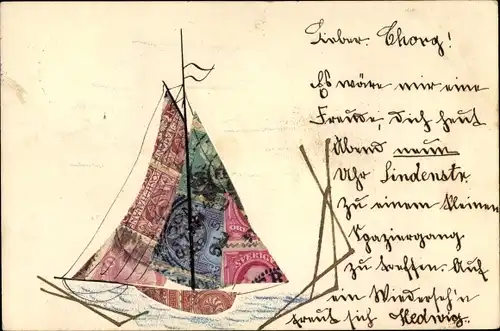 Lieber Georg!
Es wäre mir eine
Freude, dich heut
Abend neun
Uhr Lindenstr.
zu einem kleinen
Spaziergang
zu treffen. Auf
ein Wiederseh'n
freut sich Hedwig.
SVERIGE